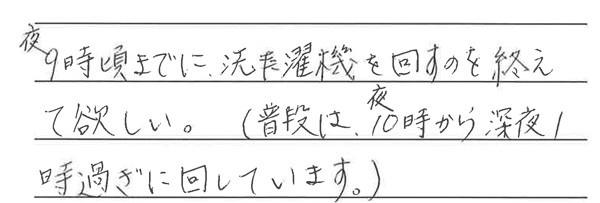 夜9時頃までに、洗濯機を回すのを終え
て欲しい。(普段は、夜10時から深夜1
時過ぎに回しています。)